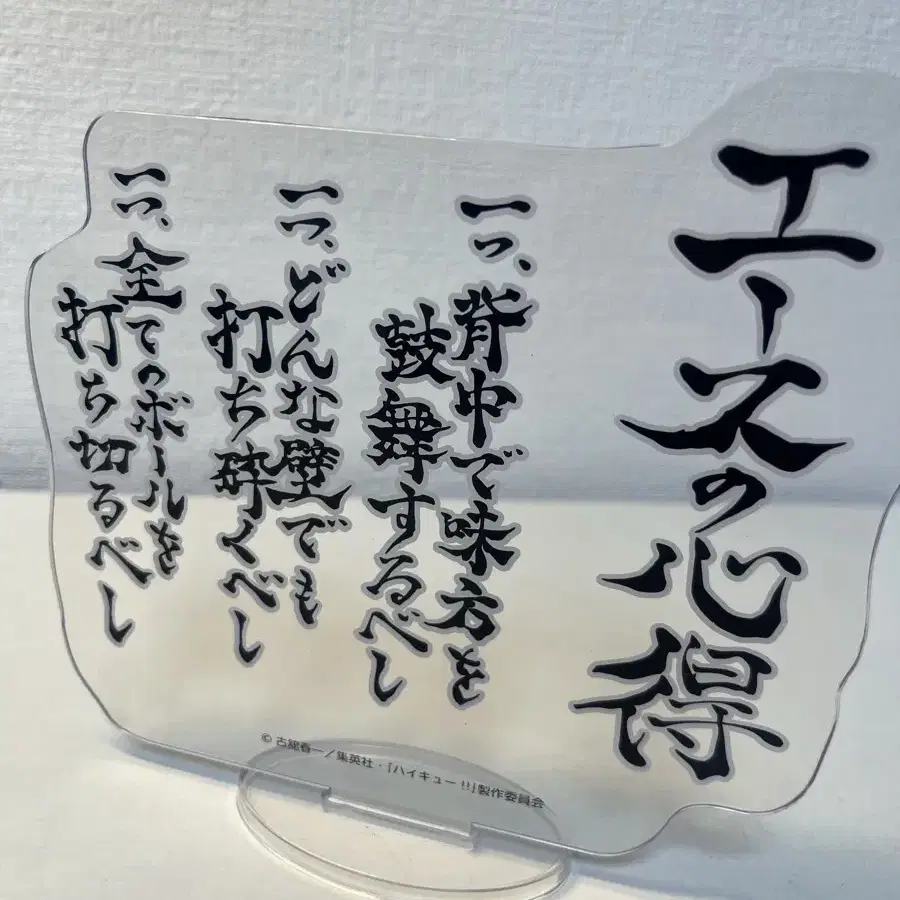 エースの心得
一つ、背中で味方を
鼓舞するべし
一つ、どんな壁でも
打ち砕くべし
一つ、全てのボールを
打ち切るべし
© 古舘春一／集英社・「ハイキュー!!」製作委員会